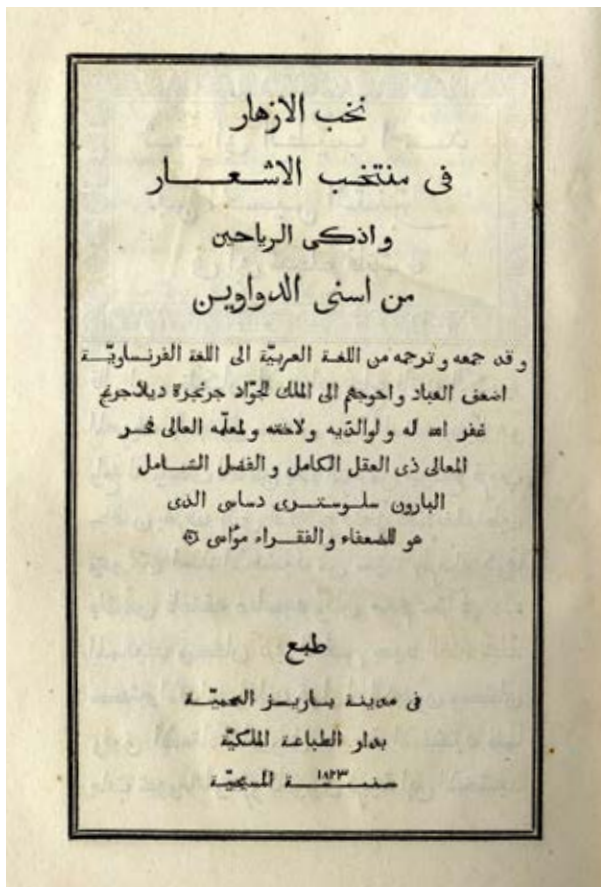 نخب الازهار
فى منتخب الاشعار
واذكى الرياحين
من اسنى الدواوين
وقد جمعه وترجمه من اللغة العربيّة الى اللغة الفرنساويّة
اضعف العباد واحوجهم الى الملك الجوّاد جرنجرة ديلاجرنج
غفر الله له ولوالديه ولاخته ولمعلّمه العالى فخر
المعالى ذى العقل الكامل والفضل الشامل
البارون سلوسترى دساسى الذى
هو للضعفاء والفقراء مؤاسى
طبع
فى مدينة باريز المحميّة
بدار الطباعة الملكيّة
سنة ١٨٢٣ المسيحيّة